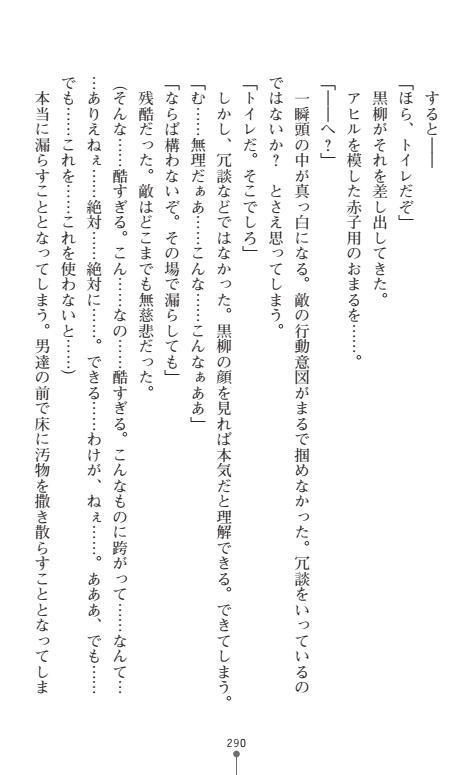 すると――
「ほら、トイレだぞ」
黒柳がそれを差し出してきた。
アヒルを模した赤子用のおまるを……。
「――へ？」
一瞬頭の中が真っ白になる。敵の行動意図がまるで掴めなかった。冗談をいっているの
ではないか？　とさえ思ってしまう。
「トイレだ。そこでしろ」
しかし、冗談などではなかった。黒柳の顔を見れば本気だと理解できる。できてしまう。
「む……無理だぁあ……こんな……こんなぁああ」
「ならば構わないぞ。その場で漏らしても」
残酷だった。敵はどこまでも無慈悲だった。
（そんな……酷すぎる。こん……なの……酷すぎる。こんなものに跨がって……なんて…
…ありえねぇ……絶対……絶対に……。できる……わけが、ねぇ……。あああ、でも……
でも……これを……これを使わないと……）
本当に漏らすこととなってしまう。男達の前で床に汚物を撒き散らすこととなってしま
290